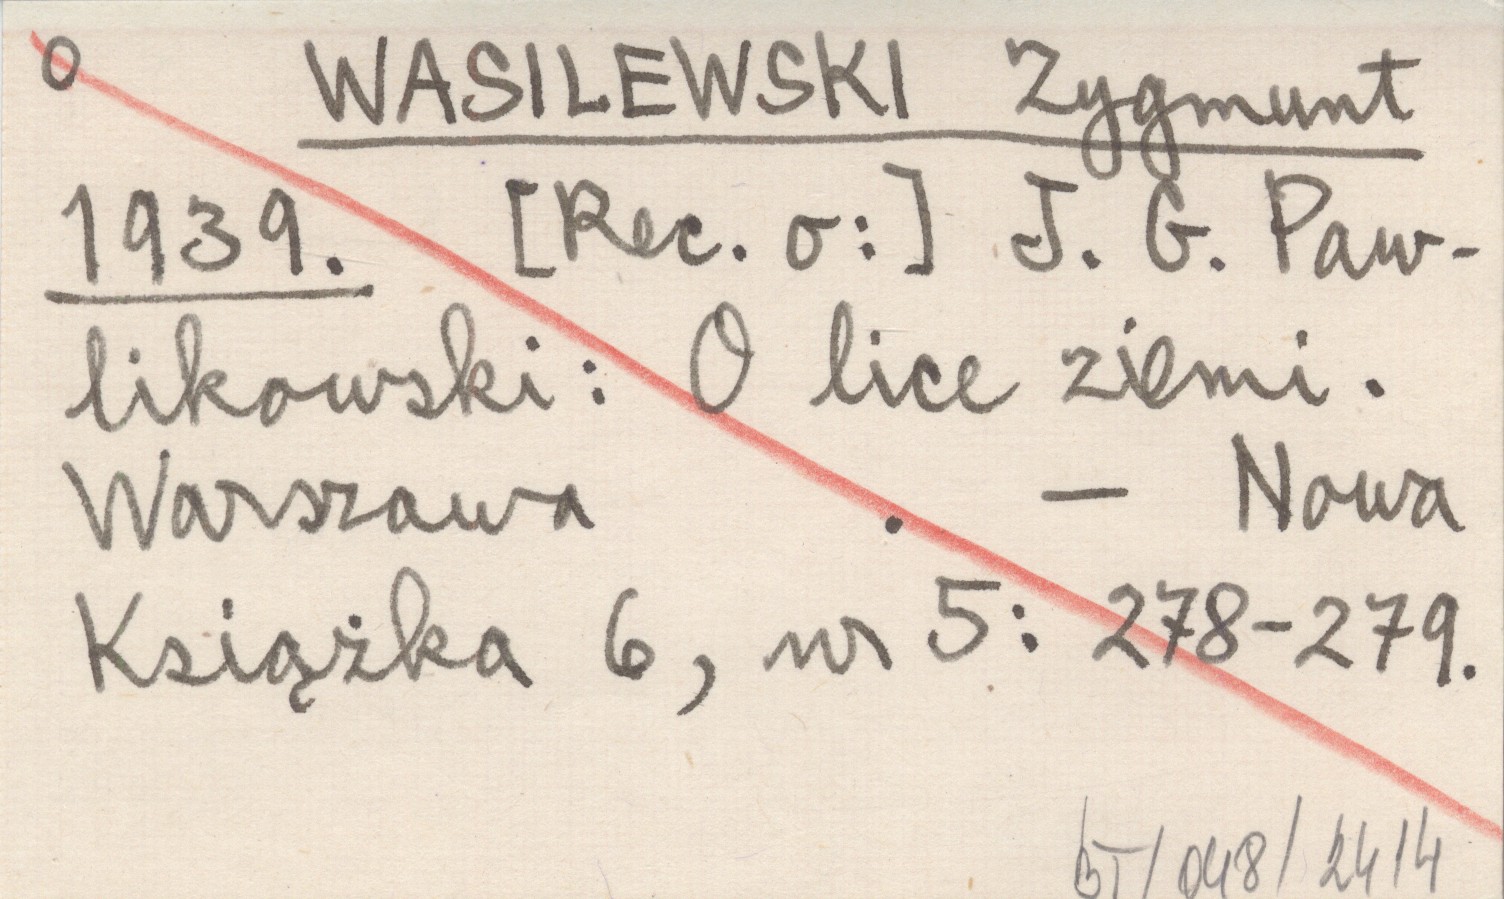 o WASILEWSKI Zygmunt
1939. [Rec. o:] J. G. Paw-
likowski: O lice ziemi.
Warszawa . — Nowa
Książka 6, nr 5: 278-279.
BT/048/2414